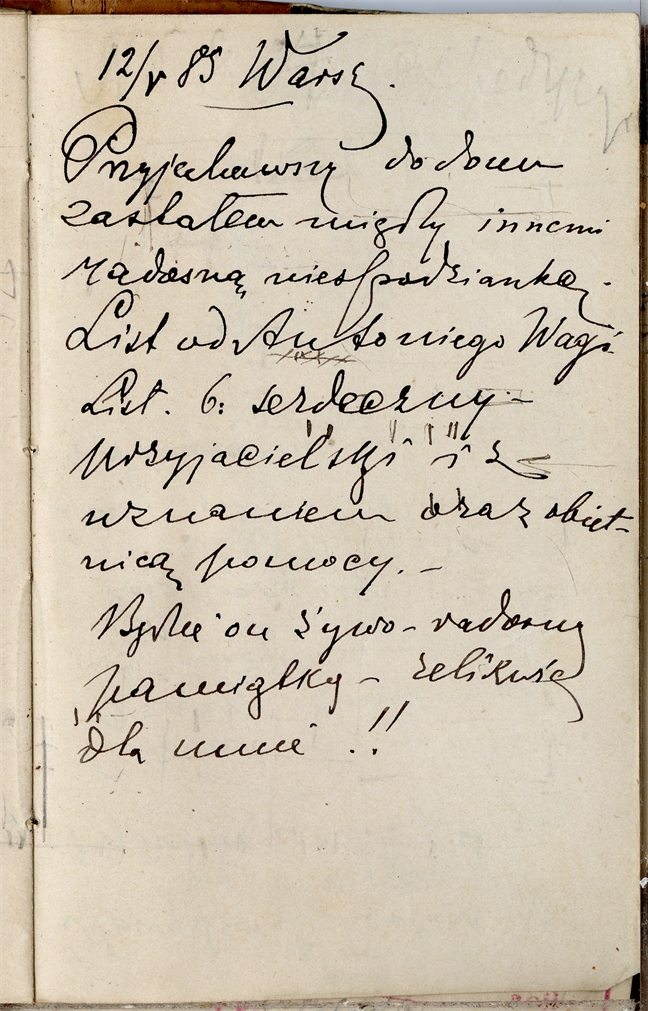 12/V 85 Warsz.
Przyjechawszy do domu
zastałem między innemi
radosną niespodziankę.
List od Antoniego Wagi
List. b: serdeczny –
przyjacielski i z
uznaniem oraz obiet-
nicą pomocy. –
Będzie on żywo – radosną
pamiątką – relikwią
dla mnie !!